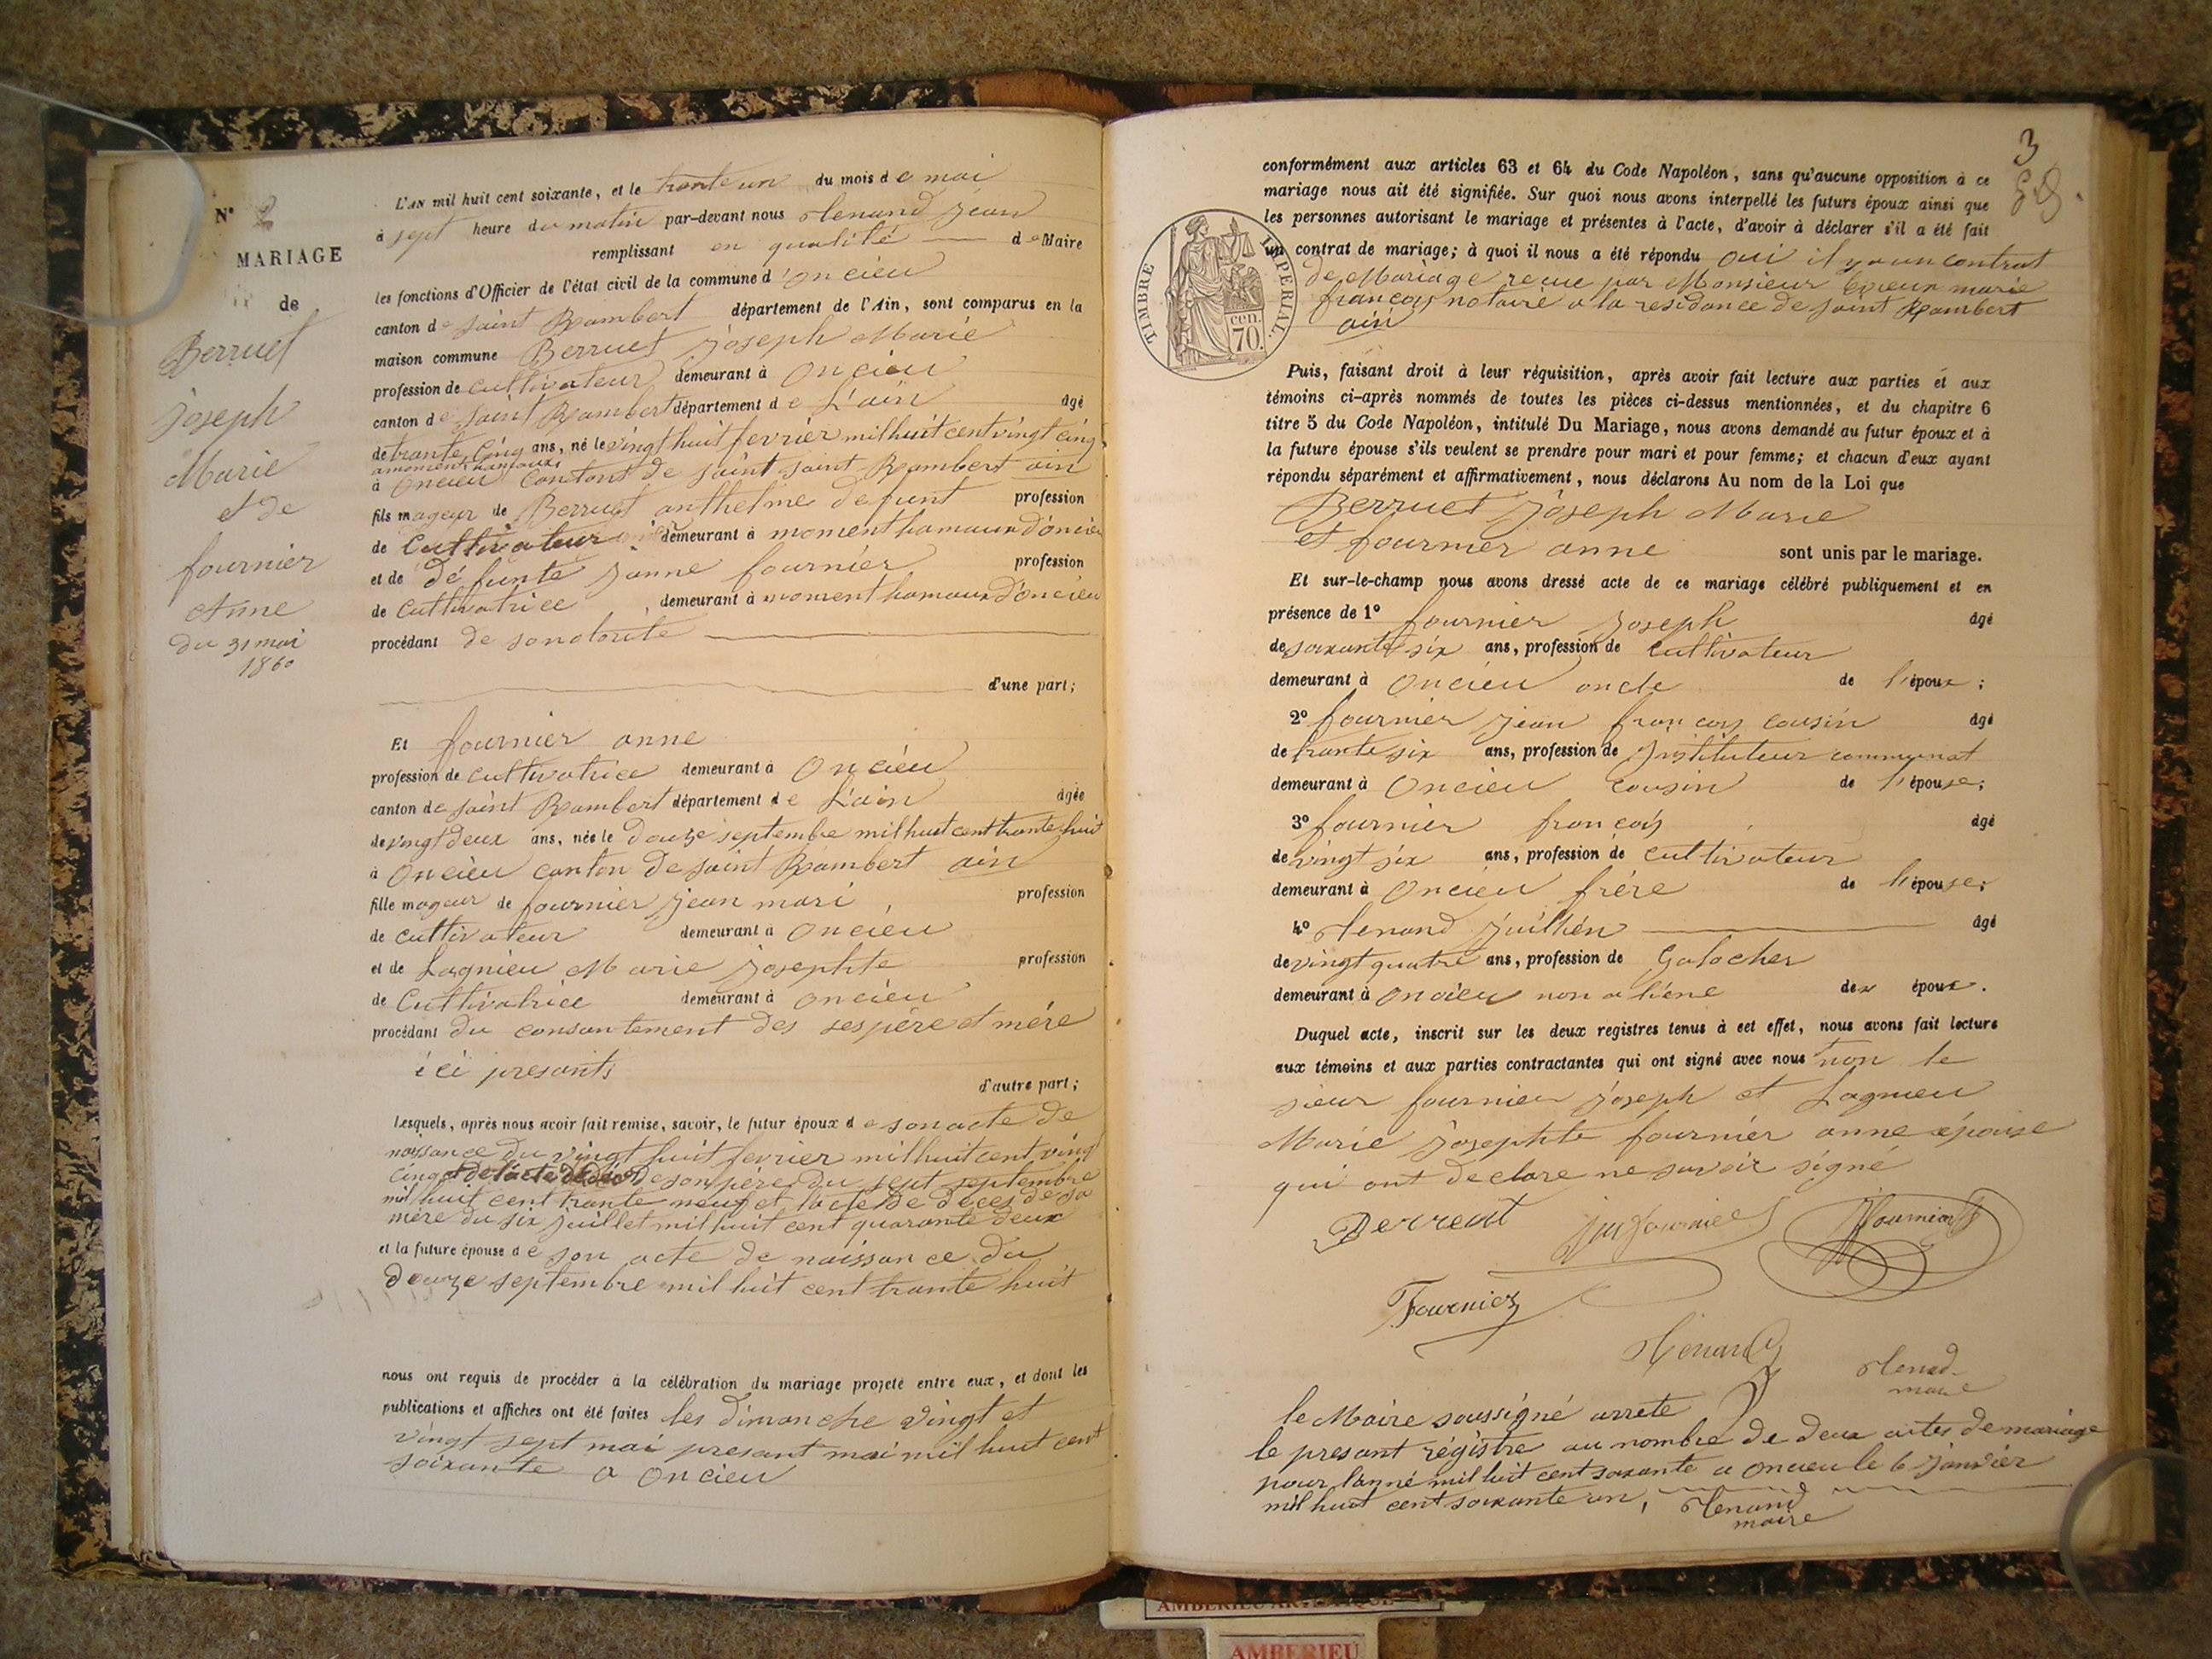 N° 2
MARIAGE
de
Berruet
Joseph
Marie
et de
fournier
Anne
du 31 mai
1860
L'AN mil huit cent soixante, et le trante un du mois de mai
à sept heure du matin par-devant nous Menand Jean
remplissant en qualité de Maire
les fonctions d'Officier de l'état civil de la commune d'oncieu
canton de saint Rambert département de l'Ain, sont comparus en la
maison commune Berruet Joseph Marie
profession de cultivateur demeurant à oncieu
canton de saint Rambert département de L'ain âgé
de trante cinq ans, né le vingt huit fevrier mil huit cent vingt cinq
à oncieu contont de saint saint Rambert ain
fils mageur de Berruet anthelme defunt profession
de cultivateur demeurant à moment hamaux d'oncieu
et de défunte Janne fournier profession
de cultivatrice demeurant à moment hamaux d'oncieu
procédant de sonotorite
d'une part;
Et fournier anne
profession de cultivatrice demeurant à oncieu
canton de saint Rambert département de L'ain âgée
de vingt deux ans, née le douze septembre mil huit cent trante huit
à oncieu canton de saint Rambert ain
fille mageur de fournier jean mari profession
de cultivateur demeurant à oncieu
et de Lagnieu Marie Josephte profession
de cultivatrice demeurant à oncieu
procédant du consantement des ses père et mére
ici presants
d'autre part;
Lesquels, après nous avoir fait remise, savoir, le futur époux de son acte de
naissance du vingt huit fevrier mil huit cent vingt
cinq et de l'acte de déces de son père du sept septembre
mil huit cent trante neuf et l'acte de deces de sa
mère du six juillet mil huit cent quarante deux
et la future épouse de son acte de naissance du
douze septembre mil huit cent trante huit
nous ont requis de procéder à la célébration du mariage projeté entre eux, et dont les
publications et affiches ont été faites les dimanche vingt et
vingt sept mai presant mai mil huit cent
soixante a oncieu
3
conformément aux articles 63 et 64 du Code Napoléon, sans qu'aucune opposition à ce
mariage nous ait été signifiée. Sur quoi nous avons interpellé les futurs époux ainsi que
les personnes autorisant le mariage et présentes à l'acte, d'avoir à déclarer s'il a été fait
un contrat de mariage; à quoi il nous a été répondu oui il y a un contrat
de Mariage recue par Monsieur marie
francois notaire a la residance de saint Rambert
ain
TIMBRE IMPERIAL.
cen.
70.
Puis, faisant droit à leur réquisition, après avoir fait lecture aux parties et aux
témoins ci-après nommés de toutes les pièces ci-dessus mentionnées, et du chapitre 6
titre 5 du Code Napoléon, intitulé Du Mariage, nous avons demandé au futur époux et à
la future épouse s'ils veulent se prendre pour mari et pour femme; et chacun d'eux ayant
répondu séparément et affirmativement, nous déclarons Au nom de la Loi que
Berruet Joseph Marie
et fournier anne sont unis par le mariage.
Et sur-le-champ nous avons dressé acte de ce mariage célébré publiquement et en
présence de 1° fournier Joseph âgé
de soixante six ans, profession de cultivateur
demeurant à oncieu oncle de l'époux;
2° fournier jean francois cousin âgé
de trante six ans, profession de Jnstituteur communat
demeurant à oncieu cousin de l'épouse;
3° fournier francois âgé
de vingt six ans, profession de cultivateur
demeurant à oncieu frère de l'épouse;
4° Menand Juillien âgé
de vingt quatre ans, profession de Galocher
demeurant à oncieu non aliéné des époux.
Duquel acte, inscrit sur les deux registres tenus à cet effet, nous avons fait lecture
aux témoins et aux parties contractantes qui ont signé avec nous non le
sieur fournier Joseph et Lagnieu
Marie Josephte fournier anne épouse
qui ont declare ne savoir signé
Berreut
jm fournier
Fournier
Menand
Menad
maire
le Maire soussigné arrete
le presant régistre au nombre de deux actes de mariage
pour l'anné mil huit cent soixante a oncieu le 6 janvier
mil huit cent soixante un, Menand
maire
AMBERIEU